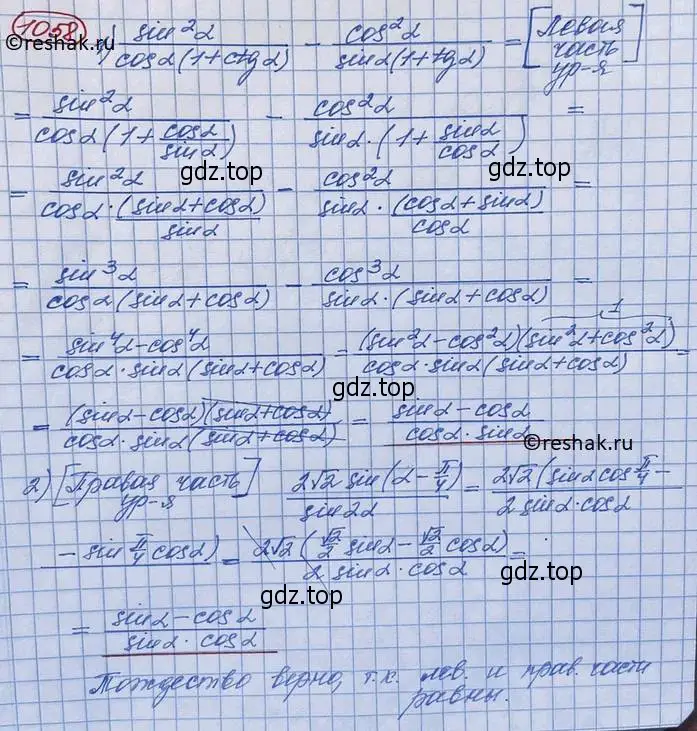 1058
©reshak.ru
1) sin²α / cosα(1+ctgα) − cos²α / sinα(1+tgα) = [Левая часть ур-я]
= sin²α / cosα(1+cosα/sinα) − cos²α / sinα·(1+sinα/cosα) =
gdz.top gdz.top
= sin²α / (cosα·(sinα+cosα)/sinα) − cos²α / (sinα·(cosα+sinα)/cosα) =
= sin³α / cosα(sinα+cosα) − cos³α / sinα·(sinα+cosα) =
1
= sin⁴α−cos⁴α / cosα·sinα(sinα+cosα) = (sin²α−cos²α)(sin²α+cos²α) / cosα·sinα(sinα+cosα) =
gdz.top gdz.top
= (sinα−cosα)(sinα+cosα) / cosα·sinα(sinα+cosα) = sinα−cosα / cosα·sinα
©reshak.ru
2) [Правая часть ур-я] 2√2 sin(α−π/4) / sin2α = 2√2(sinα cos π/4 − / 2 sinα·cosα
− sin π/4 cosα) = 2√2(√2/2 sinα − √2/2 cosα) / 2 sinα·cosα =
gdz.top gdz.top
= sinα−cosα / sinα·cosα
Тождество верно, т.к. лев. и прав. части
равны.